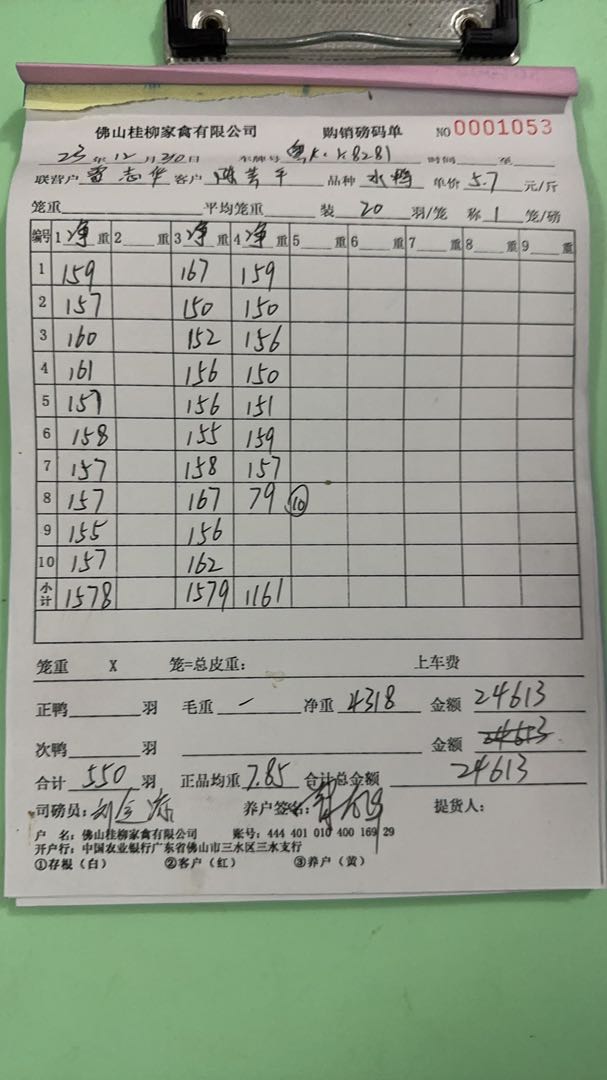 佛山桂柳家禽有限公司 购销磅码单 NO 0001053
23年12月30日 车牌号 粤K·K8281 时间
联营户 雷志华 客户 陈 平 品种 水鸭 单价 5.7 元/斤
笼重 平均笼重 装 20 羽/笼 称 1 笼/磅
编号 1 净 重 2 重 3 净 重 4 净 重 5 重 6 重 7 重 8 重 9 重
1 159 167 159
2 157 150 150
3 160 152 156
4 161 156 150
5 157 156 151
6 158 155 159
7 157 158 157
8 157 167 79 10
9 155 156
10 157 162
小计 1578 1579 1161
笼重 X 笼=总皮重: 上车费
正鸭 羽 毛重 — 净重 4318 金额 24613
次鸭 羽 金额 24613
合计 550 羽 正品均重 7.85 合计总金额 24613
司磅员: 养户签名: 提货人:
户 名: 佛山桂柳家禽有限公司 账号: 444 401 010 400 169 29
开户行: 中国农业银行广东省佛山市三水区三水支行
①存根(白) ②客户(红) ③养户(黄)